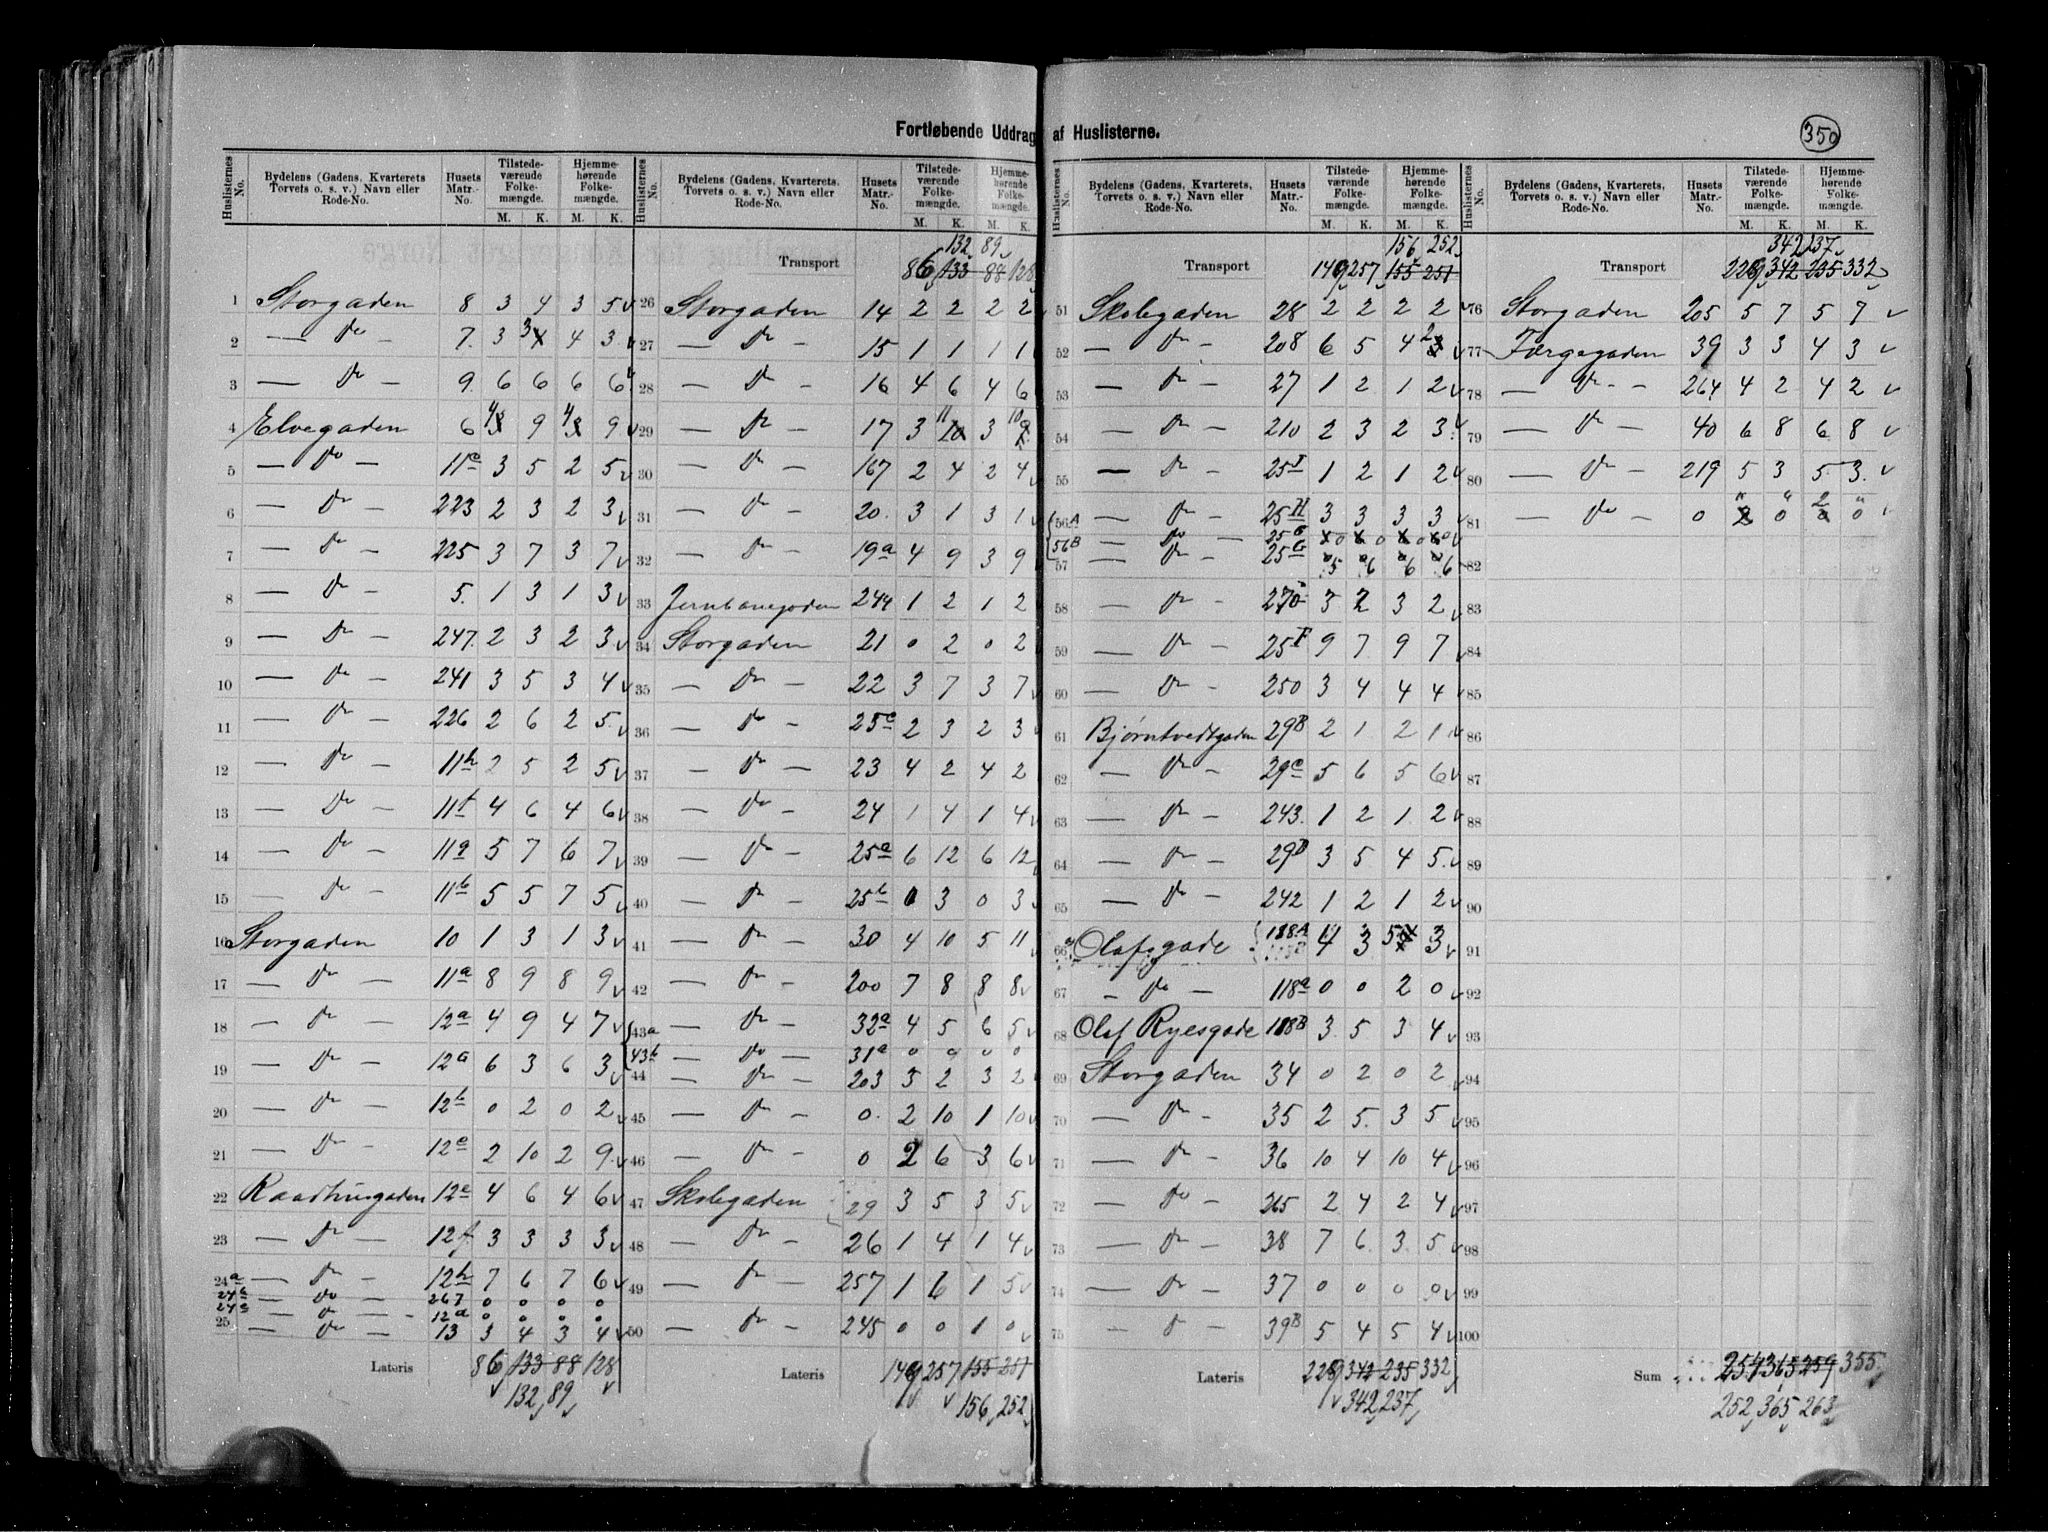 Fortløbende Uddrag af Huslisterne.
350
Huslisternes No. | Bydelens (Gadens, Kvarterets, Torvets o. s. v.) Navn eller Rode-No. | Husets Matr.-No. | Tilstedeværende Folkemængde. M. K. | Hjemmehørende Folkemængde. M. K.
1 Storgaden 8 3 4 3 5
2 — Do — 7 3 3 4 3
3 — Do — 9 6 6 6 6
4 Elvegaden 6 4 9 4 9
5 — Do — 11a 3 5 2 5
6 — Do — 223 2 3 2 3
7 — Do — 225 3 7 3 7
8 — Do — 5 1 3 1 3
9 — Do — 247 2 3 2 3
10 — Do — 241 3 5 3 4
11 — Do — 226 2 6 2 5
12 — Do — 11h 2 5 2 5
13 — Do — 11f 4 6 4 6
14 — Do — 11g 5 7 6 7
15 — Do — 11b 5 5 7 5
16 Storgaden 10 1 3 1 3
17 — Do — 11a 8 9 8 9
18 — Do — 12a 4 9 4 7
19 — Do — 12a 6 3 6 3
20 — Do — 12b 0 2 0 2
21 — Do — 12e 2 10 2 9
22 Raadhusgaden 12e 4 6 4 6
23 — Do — 12f 3 3 3 3
24a — Do — 12h 7 6 7 6
24b — Do — 267 0 0 0 0
24c — Do — 12a 0 0 0 0
25 — Do — 13 3 4 3 4
Lateris 86 133 88 128
132 89
Huslisternes No. | Bydelens (Gadens, Kvarterets, Torvets o. s. v.) Navn eller Rode-No. | Husets Matr.-No. | Tilstedeværende Folkemængde. M. K. | Hjemmehørende Folkemængde. M. K.
132 89
Transport 86 133 88 128
26 Storgaden 14 2 2 2 2
27 — Do — 15 1 1 1 1
28 — Do — 16 4 6 4 6
29 — Do — 17 3 11 3 10
30 — Do — 167 2 4 2 4
31 — Do — 20 3 1 3 1
32 — Do — 19a 4 9 3 9
33 Jernbanegaden 244 1 2 1 2
34 Storgaden 21 0 2 0 2
35 — Do — 22 3 7 3 7
36 — Do — 25c 2 3 2 3
37 — Do — 23 4 2 4 2
38 — Do — 24 1 4 1 4
39 — Do — 25a 6 12 6 12
40 — Do — 25b 0 3 0 3
41 — Do — 30 4 10 5 11
42 — Do — 200 7 8 8 8
43a — Do — 32a 4 5 6 5
43b — Do — 31a 0 0 0 0
44 — Do — 203 3 2 3 2
45 — Do — 0 2 10 1 10
46 — Do — 0 2 6 3 6
47 Skolegaden 29 3 5 3 5
48 — Do — 26 1 4 1 4
49 — Do — 257 1 6 1 5
50 — Do — 245 0 0 1 0
Lateris 149 257 155 251
156 252
Huslisternes No. | Bydelens (Gadens, Kvarterets, Torvets o. s. v.) Navn eller Rode-No. | Husets Matr.-No. | Tilstedeværende Folkemængde. M. K. | Hjemmehørende Folkemængde. M. K.
156 252
Transport 149 257 155 251
51 Skolegaden 28 2 2 2 2
52 — Do — 208 6 5 4 2
53 — Do — 27 1 2 1 2
54 — Do — 210 2 3 2 3
55 — Do — 25I 1 2 1 2
56A — Do — 25H 3 3 3 3
56B — Do — 25G 0 0 0 0
57 — Do — 25G 5 6 6 6
58 — Do — 270 3 2 3 2
59 — Do — 25F 9 7 9 7
60 — Do — 250 3 4 4 4
61 Bjørntvedtgaden 29B 2 1 2 1
62 — Do — 29c 5 6 5 6
63 — Do — 243 1 2 1 2
64 — Do — 29D 3 5 4 5
65 — Do — 242 1 2 1 2
66a Olafsgade 188A 4 3 5 3
67 — Do — 118a 0 0 2 0
68 Olaf Ryesgade 188B 3 5 3 4
69 Storgaden 34 0 2 0 2
70 — Do — 35 2 5 3 5
71 — Do — 36 10 4 10 4
72 — Do — 265 2 4 2 4
73 — Do — 38 7 6 3 5
74 — Do — 37 0 0 0 0
75 — Do — 39B 5 4 5 4
Lateris 229 342 235 332
342 237
Huslisternes No. | Bydelens (Gadens, Kvarterets, Torvets o. s. v.) Navn eller Rode-No. | Husets Matr.-No. | Tilstedeværende Folkemængde. M. K. | Hjemmehørende Folkemængde. M. K.
342 237
Transport 229 342 235 332
76 Storgaden 205 5 7 5 7
77 Færgegaden 39 3 3 4 3
78 — Do — 264 4 2 4 2
79 — Do — 40 6 8 6 8
80 — Do — 219 5 3 5 3
81 — Do — 0 " " 2 "
82
83
84
85
86
87
88
89
90
91
92
93
94
95
96
97
98
99
100
Sum 254 365 259 355
252 365 263